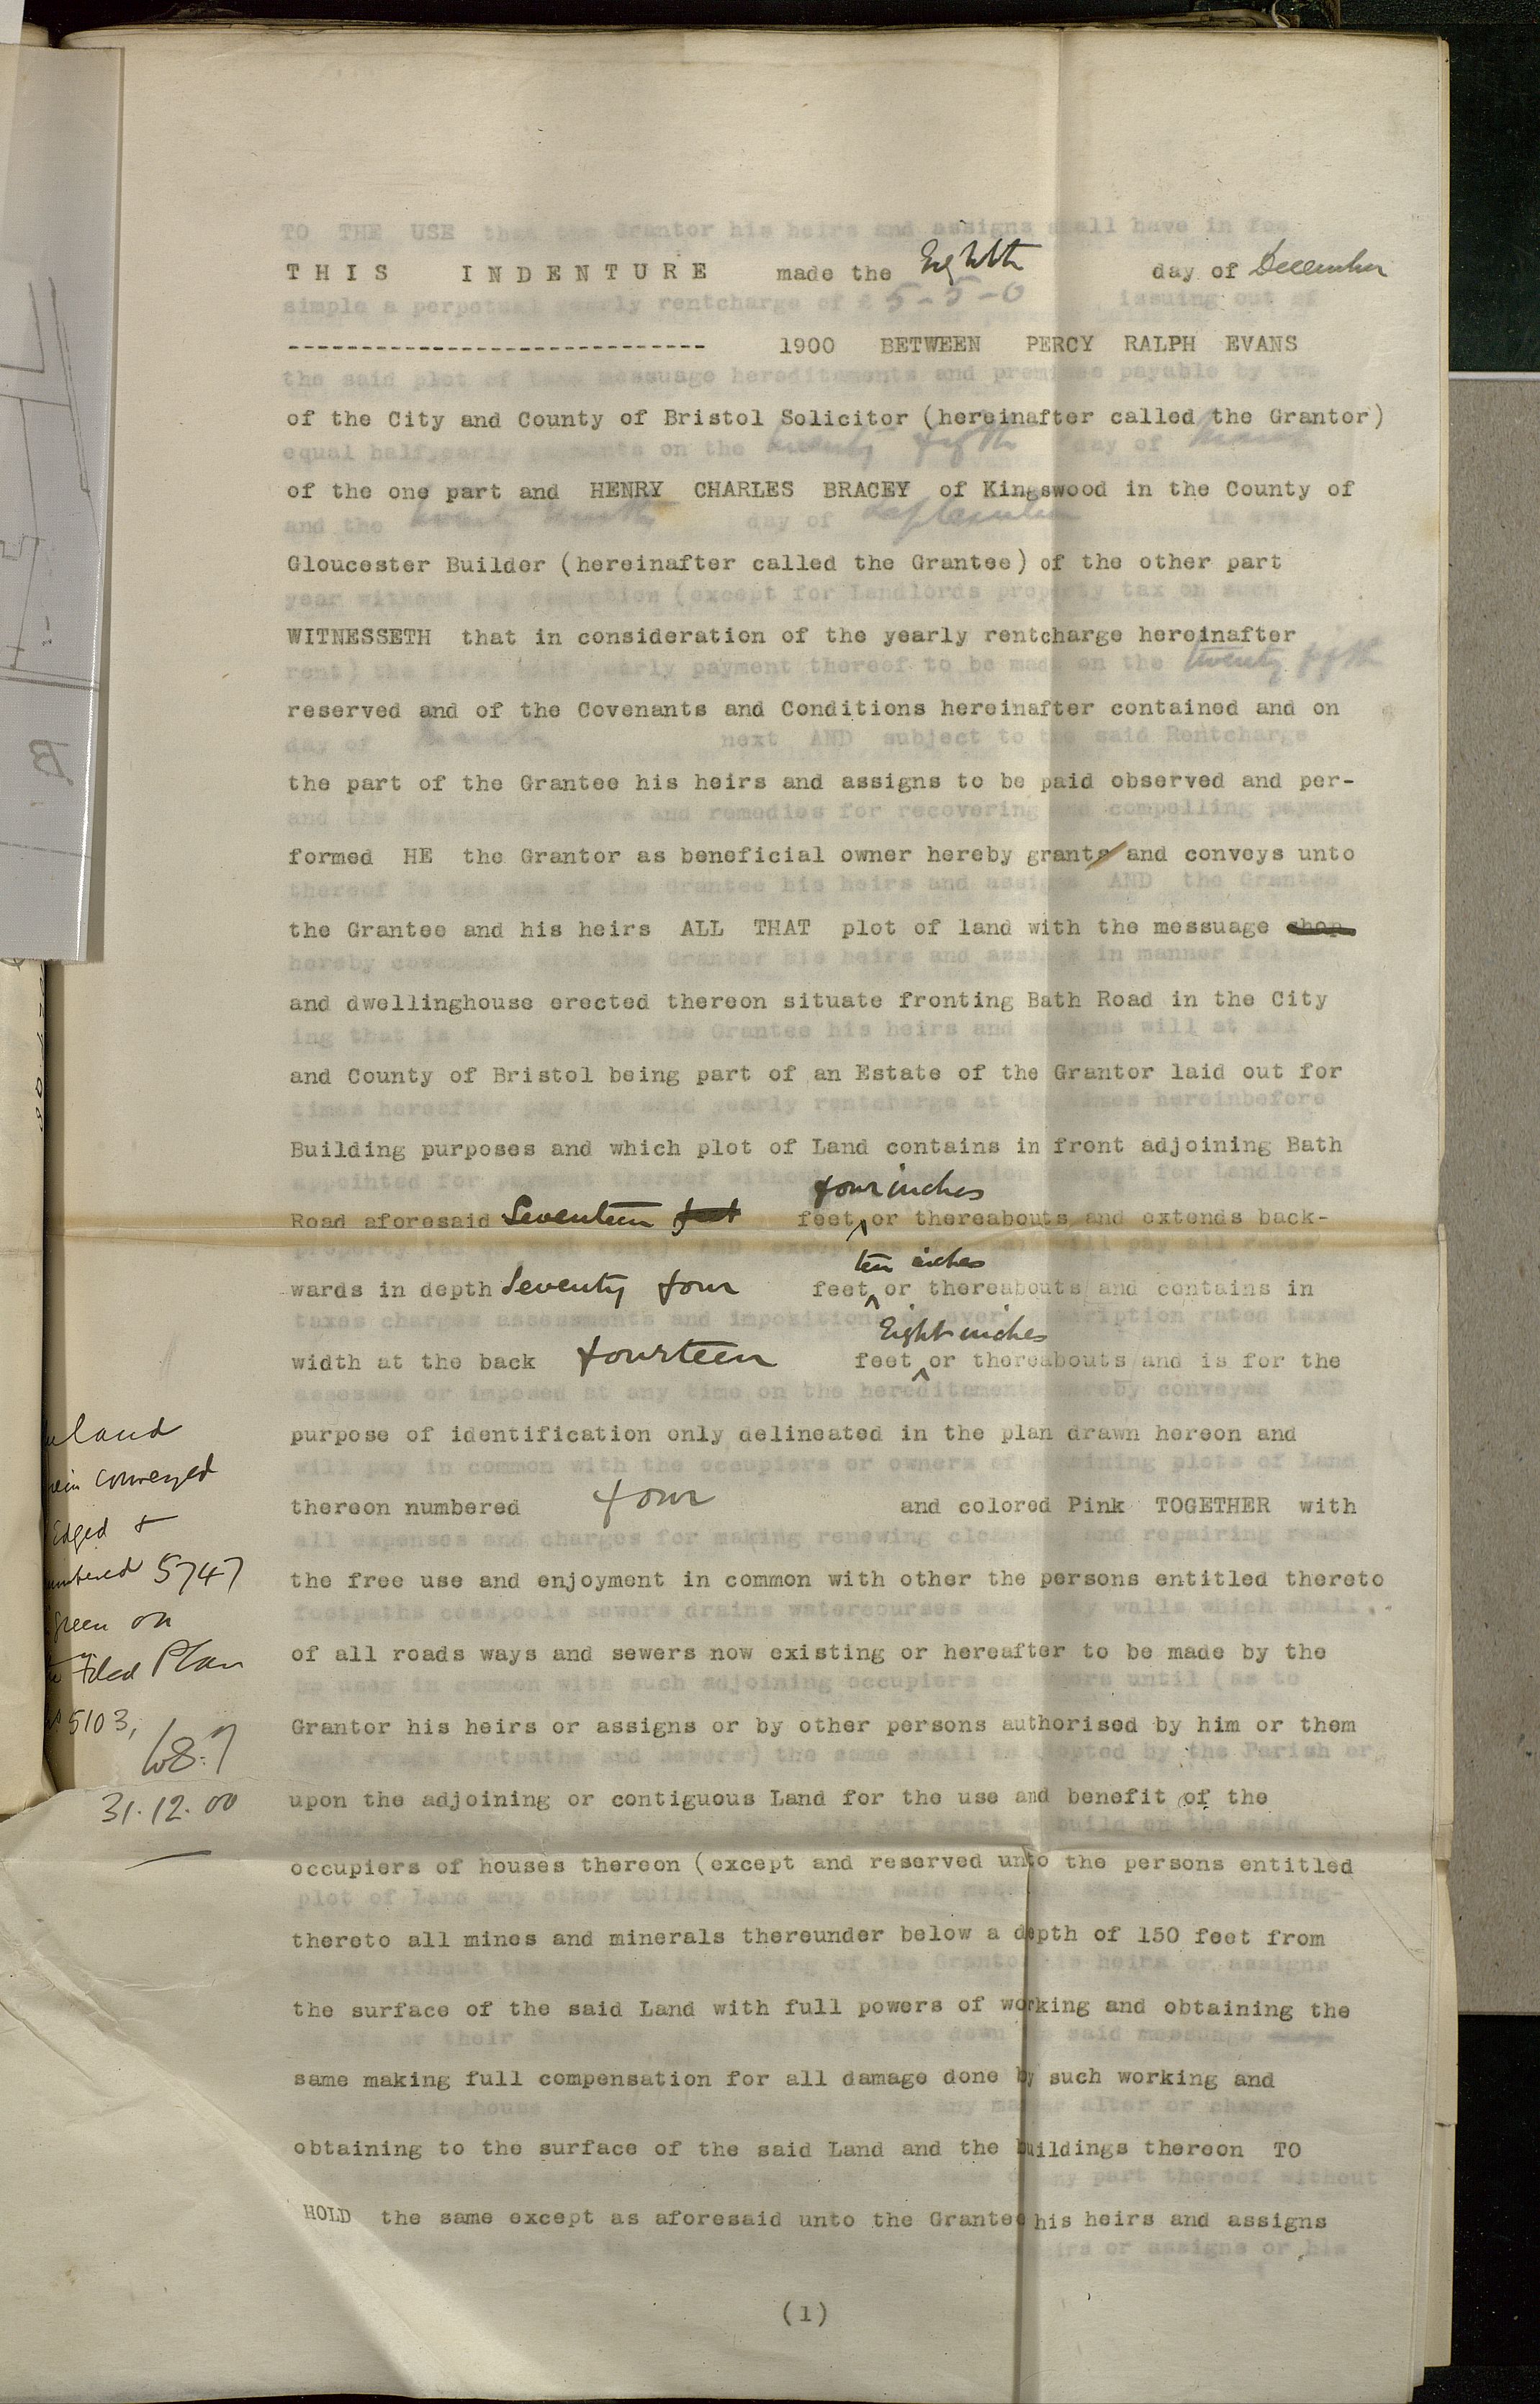 THIS INDENTURE made the Eighth day of December
---------------------------- 1900 BETWEEN PERCY RALPH EVANS
of the City and County of Bristol Solicitor (hereinafter called the Grantor)
of the one part and HENRY CHARLES BRACEY of Kingswood in the County of
Gloucester Builder (hereinafter called the Grantee) of the other part
WITNESSETH that in consideration of the yearly rentcharge hereinafter
reserved and of the Covenants and Conditions hereinafter contained and on
the part of the Grantee his heirs and assigns to be paid observed and per-
formed HE the Grantor as beneficial owner hereby grants and conveys unto
the Grantee and his heirs ALL THAT plot of land with the messuage shop
and dwellinghouse erected thereon situate fronting Bath Road in the City
and County of Bristol being part of an Estate of the Grantor laid out for
Building purposes and which plot of Land contains in front adjoining Bath
four inches
Road aforesaid Seventeen feet feet or thereabouts and extends back-
ten inches
wards in depth Seventy four feet or thereabouts and contains in
Eight inches
width at the back fourteen feet or thereabouts and is for the
purpose of identification only delineated in the plan drawn hereon and
thereon numbered four and colored Pink TOGETHER with
the free use and enjoyment in common with other the persons entitled thereto
of all roads ways and sewers now existing or hereafter to be made by the
Grantor his heirs or assigns or by other persons authorised by him or them
upon the adjoining or contiguous Land for the use and benefit of the
occupiers of houses thereon (except and reserved unto the persons entitled
thereto all mines and minerals thereunder below a depth of 150 feet from
the surface of the said Land with full powers of working and obtaining the
same making full compensation for all damage done by such working and
obtaining to the surface of the said Land and the buildings thereon TO
HOLD the same except as aforesaid unto the Grantee his heirs and assigns
(1)
land
conveyed
Edged +
5747
green on
Filed Plan
5103,
31.12.00